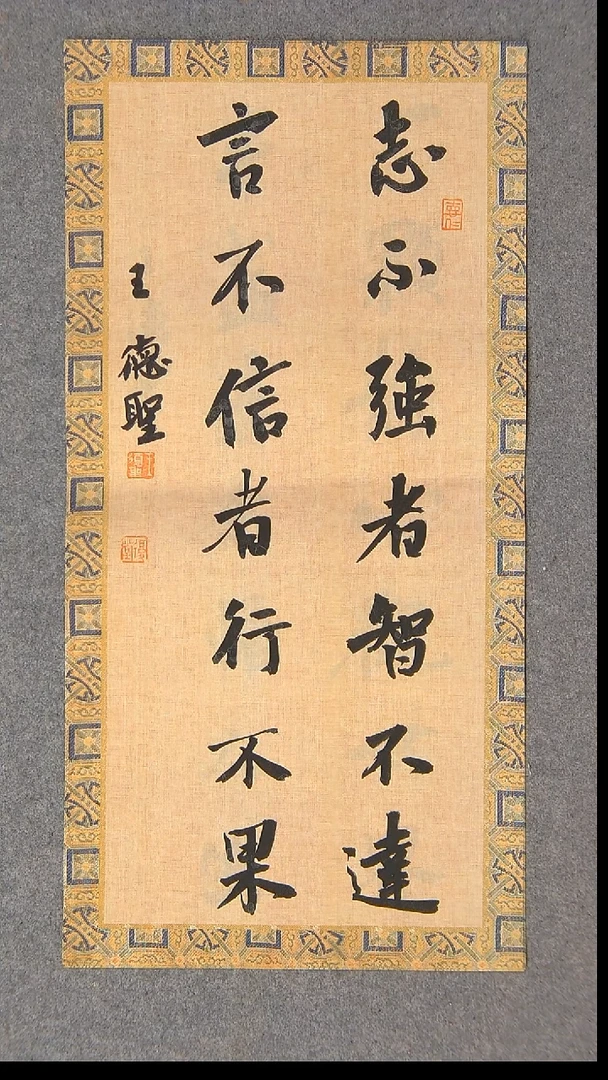 志不強者智不達
言不信者行不果
王德聖